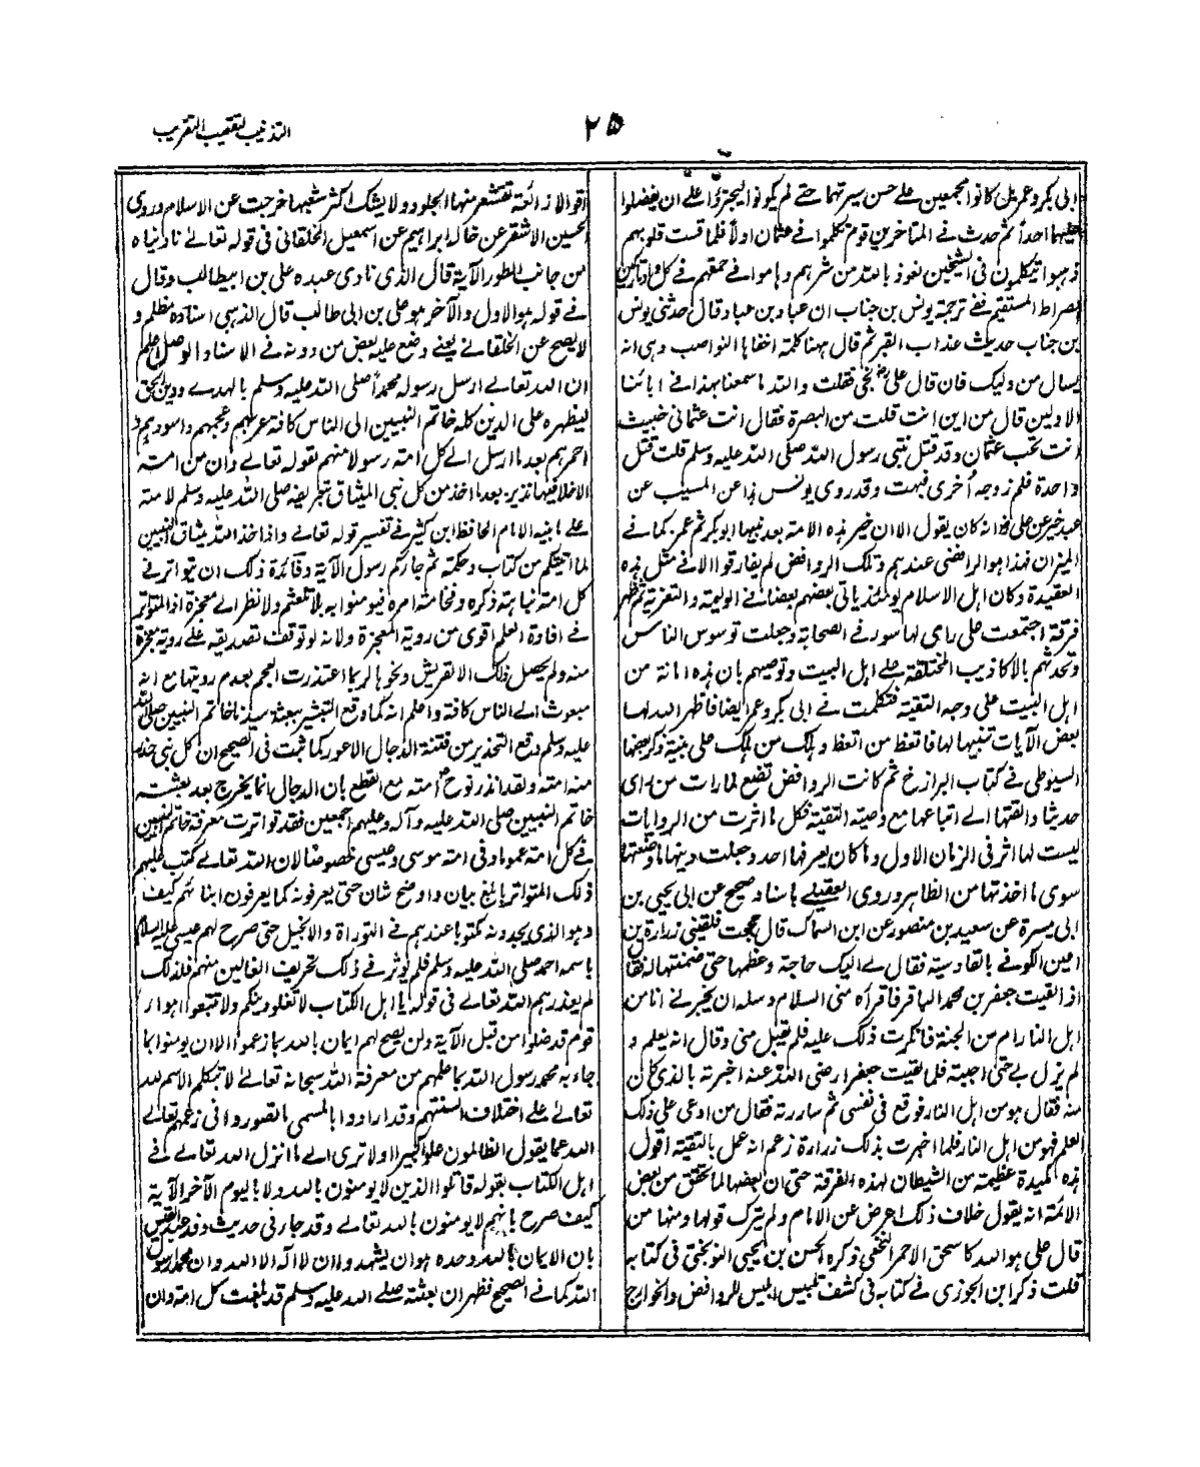 التذنيب لتعقيب التقريب
٢٥
ابى بكر وعمر بل كانوا مجمعين على حسن سيرتهما حتى لم يكونوا ليجترؤا على ان يفضلوا
عليهما احداً ثم حدث فى المتأخرين قوم تكلموا فى عثمان اولاً فلما قست قلوبهم
ذهبوا يتكلمون فى الشيخين نعوذ بالله من شرهم وهاموا فى حمقهم فى كل واد تاركين
الصراط المستقيم ففى ترجمة يونس بن خباب ان عباد بن عباد قال حدثنى يونس
بن خباب حديث عذاب القبر ثم قال ههنا كلمة اخفاها النواصب وهى انه
يسأل من وليك فان قال على نجى فقلت والله ما سمعنا بهذا فى ابائنا
الاولين قال من اين انت قلت من البصرة فقال انت عثمانى خبيث
انت تحب عثمان وقد قتل بنتى رسول الله صلى الله عليه وسلم قلت قتل
واحدة فلم زوجه أخرى فبهت وقد روى يونس هذا عن المسيب عن
عبد خير عن على انه كان يقول الا ان خير هذه الامة بعد نبيها ابو بكر ثم عمر كما فى
الميزان فهذا هو الرافضى عندهم وتلك الروافض لم يفارقوا الا فى مثل هذه
العقيدة وكان اهل الاسلام يومئذ ياتى بعضهم بعضا فى الوليمة والتعزية ثم ظهر
فرقة اجتمعت على راى لها سوء فى الصحابة وجعلت توسوس الناس
وتحدثهم بالاكاذيب المختلقة على اهل البيت وتوصيهم بان هذه امانة من
اهل البيت على وجه التقية فتكلمت فى ابى بكر وعمر ايضا فاظهر الله لها
بعض الآيات تنبيها لها فاتعظ من اتعظ وهلك من هلك على بينة ذكر بعضها
السيوطى فى كتاب البرازخ ثم كانت الروافض تضع لما رات من راى
حديثا والقتها الى اتباعها مع وصية التقية فكل ما اثرت من الروايات
ليست لها اثر فى الزمان الاول وما كان يعرفها احد وجعلت دينها ما وضعتها
سوى ما اخذتها من الظاهر وروى العقيلى باسناد صحيح عن ابى يحيى بن
ابى ميسرة عن سعيد بن منصور عن ابن السماك قال حججت فلقينى زرارة بن
اعين الكوفى بالقادسية فقال لى اليك حاجة وعظمها حتى ضمنتها له فقال
اذا لقيت جعفر بن محمد الباقر فاقرأه منى السلام وسله ان يخبرنى انا من
اهل النار ام من الجنة فانكرت ذلك عليه فلم يقبل منى وقال انه يعلم و
لم يزل بى حتى اجبته فلما لقيت جعفرا رضى الله عنه اخبرته بالذى كان
منه فقال هو من اهل النار فوقع فى نفسى ثم ساررته فقال من ادعى على ذلك
العلم فهو من اهل النار فلما اخبرت بذلك زرارة زعم انه عمل بالتقية أقول
هذه مكيدة عظيمة من الشيطان لهذه الفرقة حتى ان بعضها لما تحقق من بعض
الائمة انه يقول خلاف ذلك اعرض عن الامام ولم يترك قولها ومنها من
قال على هو الله كاسحق الاحمر النخعى ذكره الحسن بن يحيى النوبختى فى كتابه
قلت ذكر ابن الجوزى فى كتابه فى كشف تلبيس ابليس للروافض والخوارج
أقوالا زائغة تقشعر منها الجلود ولا يشك اكثر شعبها خرجت عن الاسلام وروى
الحسين الاشقر عن خاله ابراهيم عن اسمعيل الخلقانى فى قوله تعالى ناديناه
من جانب الطور الآية قال الذى نادى عبده على بن ابيطالب وقال
فى قوله هو الاول والآخر هو على بن ابى طالب قال الذهبى اسناده مظلم و
لا يصح عن الخلقانى يعنى وضع عليه بعض من دونه فى الاسناد الوصل اعلم
ان الله تعالى ارسل رسوله محمداً صلى الله عليه وسلم بالهدى ودين الحق
ليظهره على الدين كله خاتم النبيين الى الناس كافة عربهم وعجمهم واسودهم و
احمرهم بعد ما ارسل الى كل امة رسولا منهم بقوله تعالى وان من امة
الا خلا فيها نذير بعد ما اخذ من كل نبى الميثاق بتعريضه صلى الله عليه وسلم لامته
على ما بينه الامام الحافظ ابن كثير فى تفسير قوله تعالى واذ اخذ الله ميثاق النبيين
لما اتيتكم من كتاب وحكمة ثم جاءكم رسول الآية وفائدة ذلك ان يتواتر فى
كل امة نباهة ذكره وفخامة امره فيومنوا به بلا تلعثم ولا نظر الى معجزة اذ المتواتر
فى افادة العلم اقوى من روية المعجزة ولانه لو توقف تصديقه على روية معجزة
منه ولم يحصل ذلك الا لقريش ونحوها لربما اعتذرت العجم بعدم رويتها مع انه
مبعوث الى الناس كافة واعلم انه كما وقع التبشير ببعثة سيدنا خاتم النبيين صلى الله
عليه وسلم وقع التحذير من فتنة الدجال الاعور كما ثبت فى الصحيح ان كل نبى حذر
منه امته ولقد انذر نوح امته مع القطع بان الدجال انما يخرج بعد بعثة
خاتم النبيين صلى الله عليه وآله وعليهم اجمعين فقد تواترت معرفة خاتم النبيين
فى كل امة عموما وفى امة موسى وعيسى خصوصا لان الله تعالى كتب عليهم
ذلك المتواتر بابلغ بيان واوضح شان حتى يعرفونه كما يعرفون ابناءهم كيف
وهو الذى يجدونه مكتوبا عندهم فى التوراة والانجيل حتى صرح لهم عيسى عليه السلام
باسمه احمد صلى الله عليه وسلم فلم يوثر فى ذلك تحريف الغالين منهم فلذلك
لم يعذرهم الله تعالى فى قوله يا اهل الكتاب لا تغلو دينكم ولا تتبعوا اهواء
قوم قد ضلوا من قبل الآية ولن يصح لهم ايمان بالله بما زعموا الا ان يومنوا بما
جاء به محمد رسول الله بما علمهم من معرفة الله سبحانه تعالى لا تتكلم الاسم لله
تعالى على اختلاف السنتهم وقد ارادوا بالمسمى ما تصوروا فى زعمهم تعالى
الله عما يقول الظالمون علوا كبيرا اولا ترى الى ما انزل الله تعالى فى
اهل الكتاب بقوله قاتلوا الذين لا يومنون بالله ولا باليوم الآخر الآية
كيف صرح بانهم لا يومنون بالله تعالى وقد جاء فى حديث وفد عبد القيس
بان الايمان بالله وحده هو ان يشهدوا ان لا اله الا الله وان محمدا رسول
الله كما فى الصحيح فظهر ان بعثته صلى الله عليه وسلم قد بلغت كل امة وان